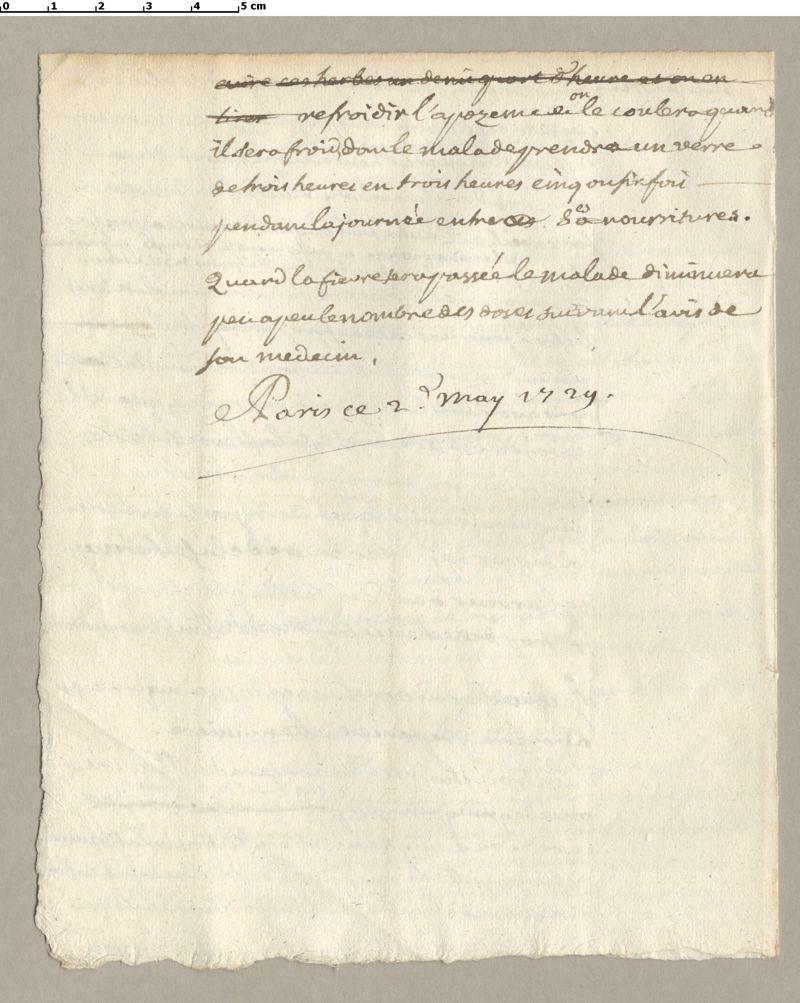 0 1 2 3 4 5 cm
cuire ces herbes un demi quart d'heure et on en
tirer refroidir l'apozeme et on le coulera quand
il sera froid, dont le malade prendra un verre
de trois heures en trois heures cinq ou six fois
pendant la journée entre ses nourritures.
Quand la fievre sera passée le malade diminuera
peu a peu le nombre des doses suivant l'avis de
son medecin,
A Paris ce 2d. May 1729.